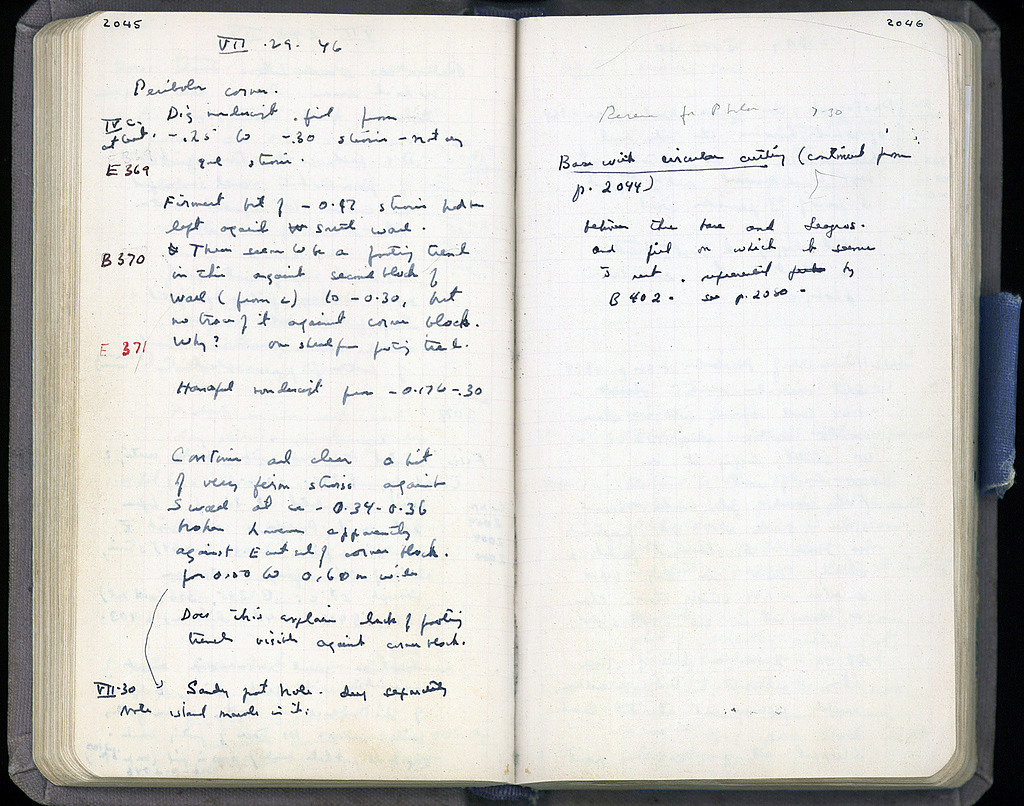 2045
VII . 29 . 46
Peribolos corner.
IV c. Dig nondescript fill from
at least. -.25 to -.30 stereo - not any
E 369
good stereo.
Firmest bit of -0.42 stereo
left against south wall.
B 370 There seem to be a footing trench
in this against second block of
wall (from E) to -0.30, but
no trace of it against corner block.
E 371 Why? footing trench.
nondescript from -0.176-.30
Continue and clear a bit
of very firm stereo against
S wall at ca -0.34-0.36
broken however apparently
against East end of corner block.
for 0.50 to 0.60 m wide
Does this explain lack of footing
trench visible against corner block.
VII-30 Sandy pot hole. dug separately
Note island made in it.
2046
7-30
Base with circular cutting (continued from
p. 2044)
between the base and Leagros.
and fill on which it seems
to rest. represented by
B 402. see p. 2050.